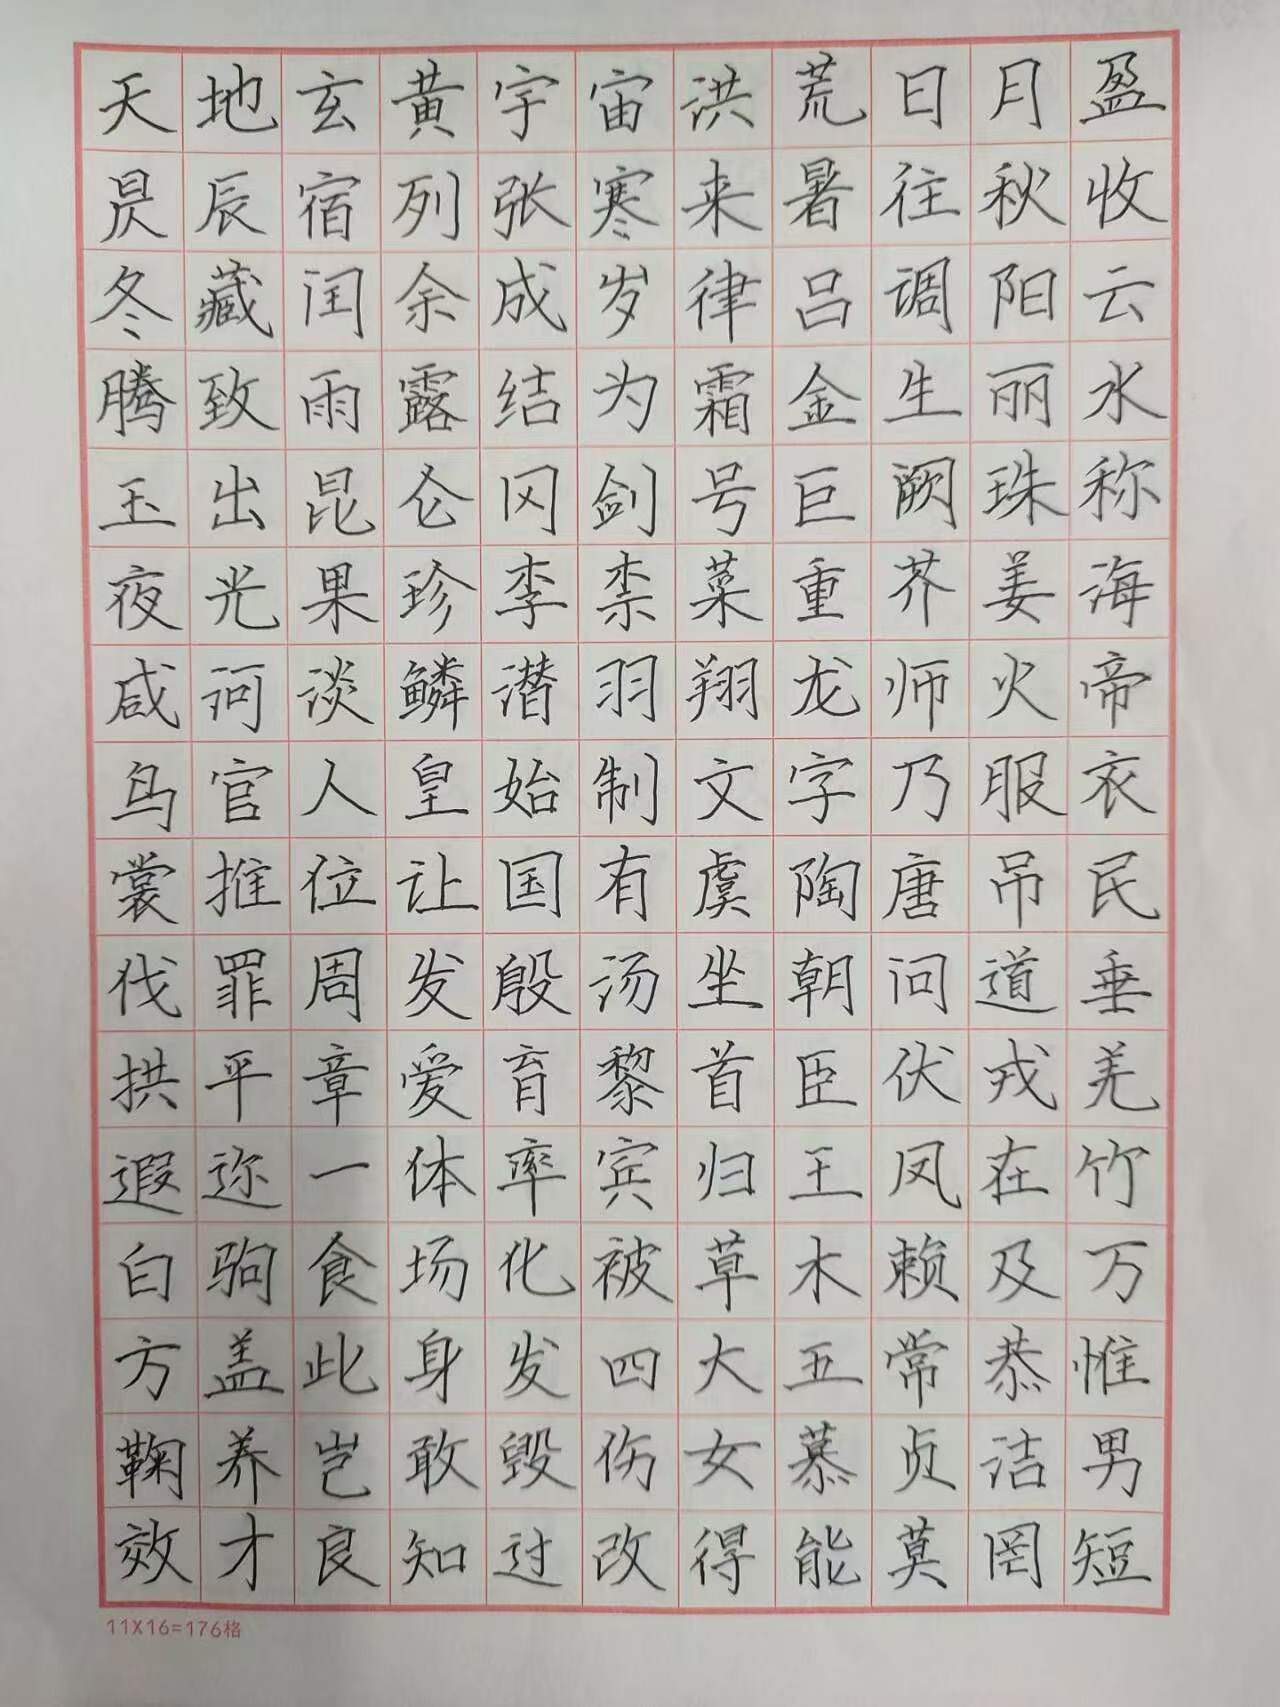 天地玄黄宇宙洪荒日月盈
昃辰宿列张寒来暑往秋收
冬藏闰余成岁律吕调阳云
腾致雨露结为霜金生丽水
玉出昆仑冈剑号巨阙珠称
夜光果珍李柰菜重芥姜海
咸河淡鳞潜羽翔龙师火帝
鸟官人皇始制文字乃服衣
裳推位让国有虞陶唐吊民
伐罪周发殷汤坐朝问道垂
拱平章爱育黎首臣伏戎羌
遐迩一体率宾归王凤在竹
白驹食场化被草木赖及万
方盖此身发四大五常恭惟
鞠养岂敢毁伤女慕贞洁男
效才良知过改得能莫罔短
11X16=176格